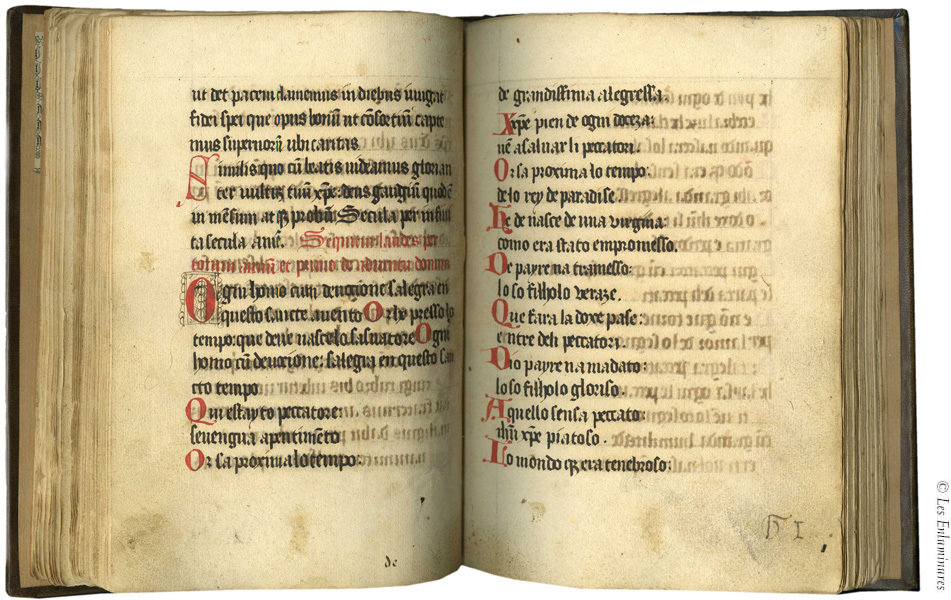 ut det pacem damenus in diebus uiugat
fidei spei que opus bonū ut cōsortiū capte
mus superiorū ubi caritas
Simulis quo cū beatis uideamus glorian
ter uultū tuū xp̄e: deus gaudiū quod ē
in mēsum atqȝ probū Secula per infini
ta secula amē. Sequntur laudes per
totum annū et primo de aduentu domini
Ogni homo cum deuocione salegra en
questo sancto auento Or lo presso lo
tempo: que deue nascelo saluatore Ogni
homo cū deuocione: salegra en questo san
cto tempo
Qui estayto peccatore:
seuengna apentimēto
Or sa proxima lo tempo:
de
de grandissima alegressa.
Xp̄e pien de ogni docza:
uē a saluar li peccatori.
Or sa proxima lo tempo:
delo rey de paradise.
He de nasce de una virgina:
como era stato empromesso.
De payre na tramesso:
lo so filholo veraze.
Que fara la doxe pase:
entre deli peccatory.
Dio payre na mādato:
lo so filholo glorioso.
Aquello sensa peccato:
ihū xp̄e piatoso.
Lo mondo qȝ era tenebroso:
h I
© Les Enluminures